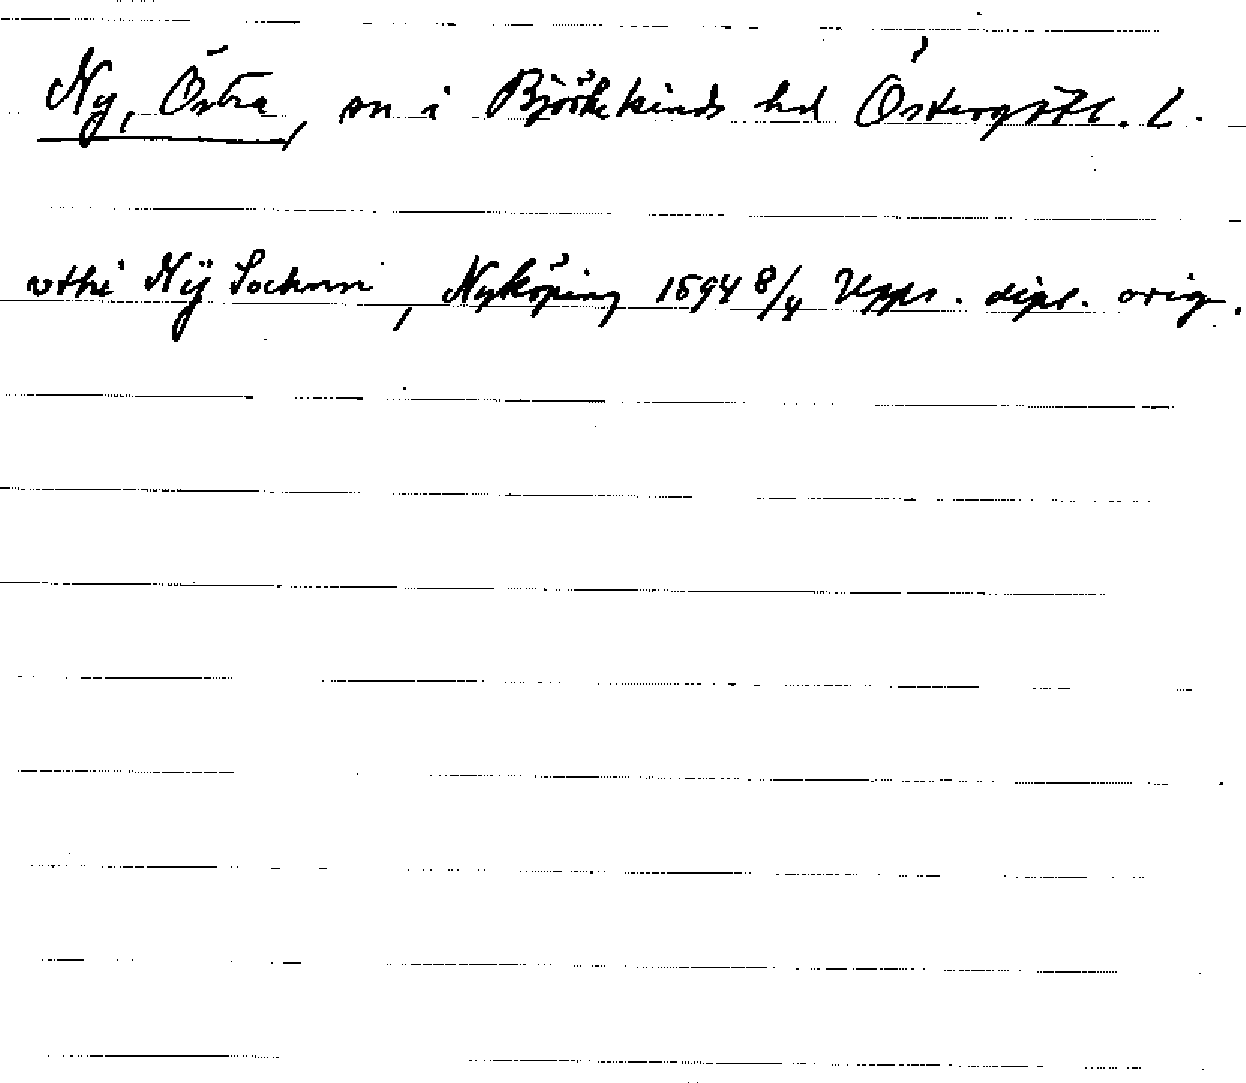 Ny, Östra, sn i Björkekinds hd Östergötl. l.
vthi Nÿ Sochnn, Nyköping 1594 8/4 Upps. dipl. orig.